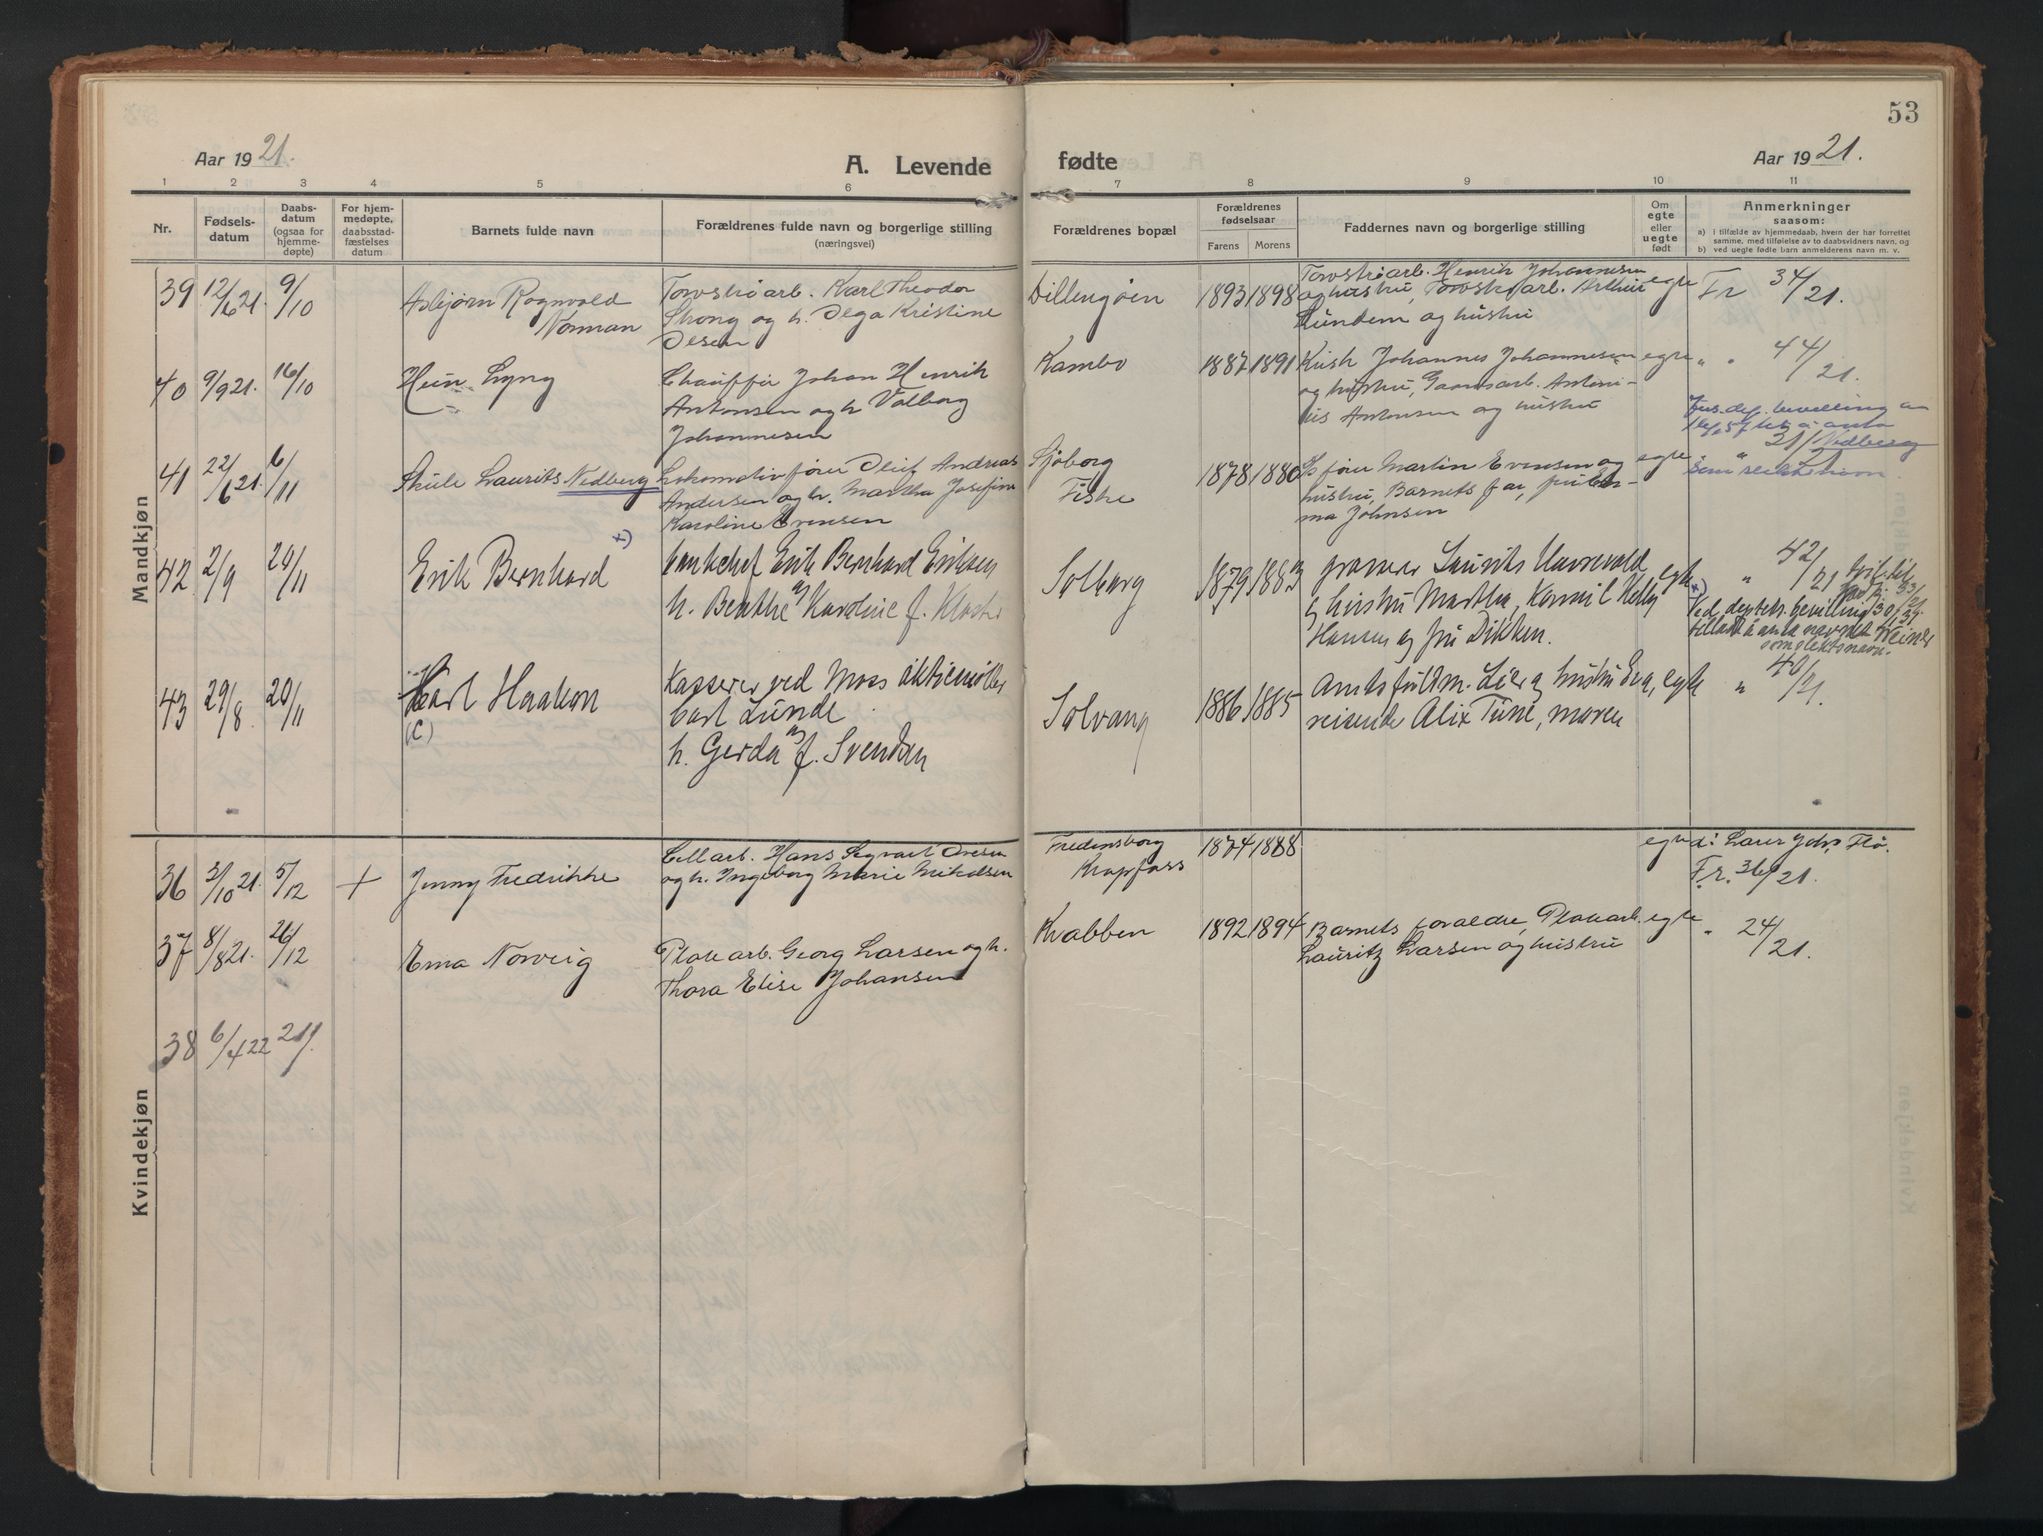 53
Aar 1921.
A. Levende fødte
Aar 1921.
1 2 3 4 5 6 7 8 9 10 11
Nr.
Fødsels-
datum
Daabs-
datum
(ogsaa for
hjemme-
døpte)
For hjem-
medøpte,
daabsstad-
fæstelses
datum
Barnets fulde navn
Forældrenes fulde navn og borgerlige stilling
(næringsvei)
Forældrenes bopæl
Forældrenes
fødselsaar
Farens Morens
Faddernes navn og borgerlige stilling
Om
egte
eller
uegte
født
Anmerkninger
saasom:
a) i tilfælde av hjemmedaab, hvem der har forrettet
samme, med tilføielse av to daabsvidners navn, og
b) ved uegte fødte barn anmelderens navn m. v.
Mandkjøn
39 12/6 21. 9/10
Asbjørn Ragnvald
Norman
Karl Theodor
Strong og h. Olga Kristine
Olsen
Dillingøen
1893 1898
Henrik Johannesen
og hustru, Arthur
Lundem og hustru
egte
Fr 34/21.
40 9/9 21. 16/10
Hein Lyng
Chauffør Johan Henrik
Antonsen og h Valborg
Johannesen
Kambo
1887 1891
Johannes Johannesen
og hustru, Antoni-
us Antonsen og hustru
egte
" " 44/21.
41 22/6 21. 6/11
Skule Laurits Nedberg
Lokomotivfører Oluf Andreas
Andersen og h. Martha Josefine
Karoline Evensen
Sjøborg
Fiske
1878 1880
Martin Evensen og
hustru, Barnets far,
Johnsen
egte
Jus. dep. bevilling
Nedberg
som slektsnavn
42 2/9 20/11
Erik Bernhard
x)
bankchef Erik Bernhard Eriksen
h. Benthe Karoline f. Kloster
Solberg
1879 1883
Laurits Havrevold
og hustru Martha,
Hansen og fru Dikken.
egte
" 42/21
x)
Ved dep. bevilling
tillatt å anta navnet
som slektsnavn.
43 29/8 20/11
Karl Haakon
(C)
Kasserer ved Moss aktiemøller
Carl Lunde
h. Gerda f. Svendsen
Solvang
1886 1885
Amtsfuldm. Lier og hustru Eva,
reisende Alix Tune, moren
egte
" 40/21.
Kvindekjøn
36 3/10 21. 5/12 +
Jenny Fredrikke
Cell arb. Hans Sigvart Olsen
og h. Ingeborg Marie Mikalsen
Fredensborg
Krapfoss
1874 1888
egte
Fr. 36/21.
37 8/8 21. 26/12
Erna Norveig
Georg Larsen og h.
Thora Elise Johansen
Krabben
1892 1894
Barnets forældre,
Lauritz Larsen og hustru
egte
" 24/21.
38 6/4 22 21/1.